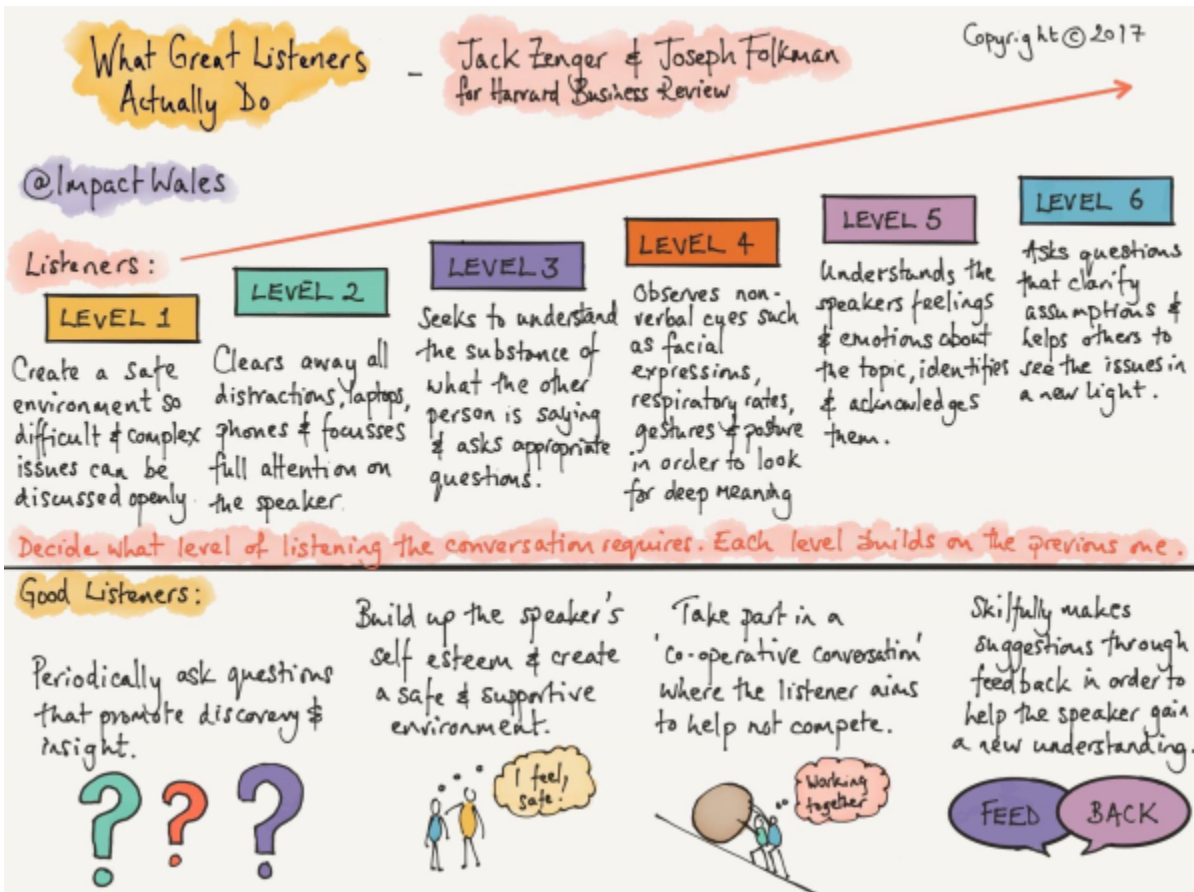 What Great Listeners
Actually Do
-
Jack Zenger & Joseph Folkman
for Harvard Business Review
Copyright © 2017
@ImpactWales
Listeners:
LEVEL 1
Create a safe
environment so
difficult & complex
issues can be
discussed openly.
LEVEL 2
Clears away all
distractions, laptops,
phones & focusses
full attention on
the speaker.
LEVEL 3
Seeks to understand
the substance of
what the other
person is saying
& asks appropriate
questions.
LEVEL 4
Observes non-
verbal cues such
as facial
expressions,
respiratory rates,
gestures & posture
in order to look
for deep meaning
LEVEL 5
Understands the
speakers feelings
& emotions about
the topic, identifies
& acknowledges
them.
LEVEL 6
Asks questions
that clarify
assumptions &
helps others to
see the issues in
a new light.
Decide what level of listening the conversation requires. Each level builds on the previous one.
Good Listeners:
Periodically ask questions
that promote discovery &
insight.
? ? ?
Build up the speaker's
self esteem & create
a safe & supportive
environment.
I feel
safe!
Take part in a
'co-operative conversation'
where the listener aims
to help not compete.
Working
together
Skilfully makes
suggestions through
feedback in order to
help the speaker gain
a new understanding.
FEED BACK